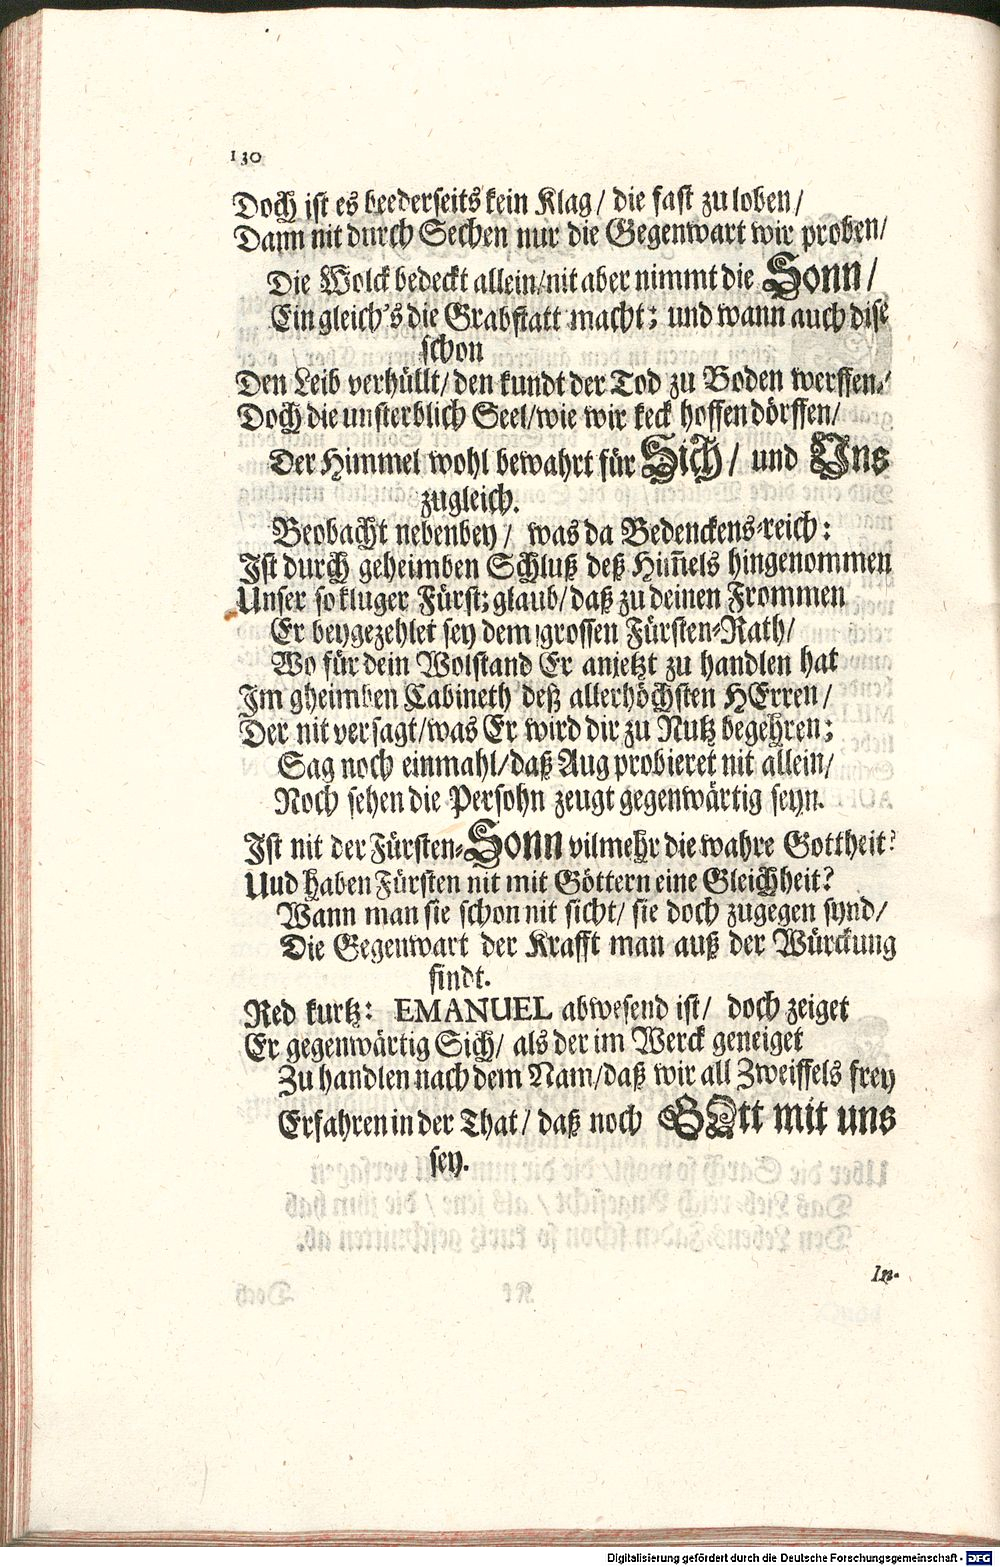 130
Doch ist es beederseits kein Klag/ die fast zu loben/
Dann nit durch Sechen nur die Gegenwart wir proben/
Die Wolck bedeckt allein/nit aber nimmt die Sonn/
Ein gleich's die Grabstatt macht; und wann auch dise
schon
Den Leib verhüllt/den kundt der Tod zu Boden werffen/
Doch die unsterblich Seel/wie wir keck hoffen dörffen/
Der Himmel wohl bewahrt für Sich/ und Uns
zugleich.
Beobacht nebenbey/ was da Bedenckens-reich:
Ist durch geheimben Schluß deß Him̄els hingenommen
Unser so kluger Fürst; glaub/ daß zu deinen Frommen
Er beygezehlet sey dem grossen Fürsten-Rath/
Wo für dein Wolstand Er anjetzt zu handlen hat
Im gheimben Cabineth deß allerhöchsten HErren/
Der nit versagt/was Er wird dir zu Nutz begehren;
Sag noch einmahl/daß Aug probieret nit allein/
Noch sehen die Persohn zeugt gegenwärtig seyn.
Ist nit der Fürsten-Sonn vilmehr die wahre Gottheit?
Und haben Fürsten nit mit Göttern eine Gleichheit?
Wann man sie schon nit sicht/ sie doch zugegen synd/
Die Gegenwart der Krafft man auß der Würckung
findt.
Red kurtz: EMANUEL abwesend ist/ doch zeiget
Er gegenwärtig Sich/ als der im Werck geneiget
Zu handlen nach dem Nam/daß wir all Zweiffels frey
Erfahren in der That/ daß noch GOtt mit uns
sey.
In-
Digitalisierung gefördert durch die Deutsche Forschungsgemeinschaft - DFG